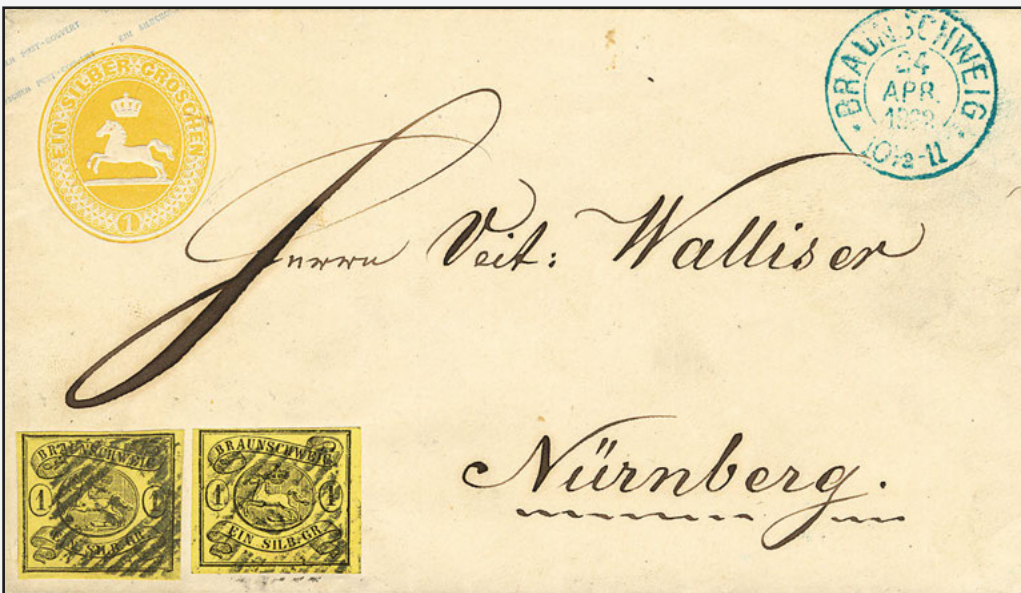 POST-COUVERT EIN SILBERGR
POST-COUVERT
EIN SILBER GROSCHEN
1
BRAUNSCHWEIG
24
APR.
10½-11
Herrn Veit: Walliser
Nürnberg.
BRAUNSCHWEIG
1 1
EIN SILB.GR.
BRAUNSCHWEIG
1 1
EIN SILB.GR.